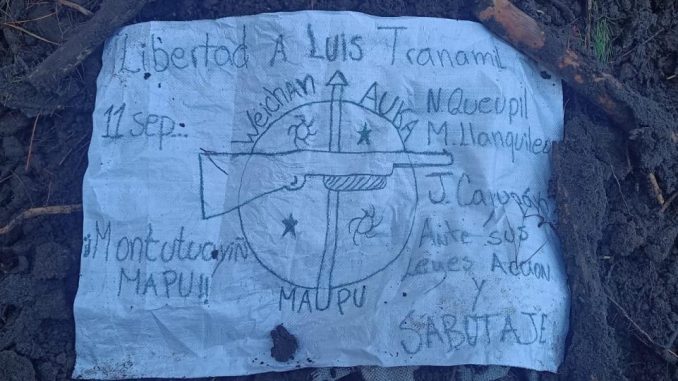 Libertad A LUIS Tranamil
Weichan AUKA
N. Queupil
11 sep..
M. Llanquileo
J. Carupán
¡¡Montutuayiñ
MAPU!!
MAUPU
Ante sus
Leyes Accion
y
SABUTAJE